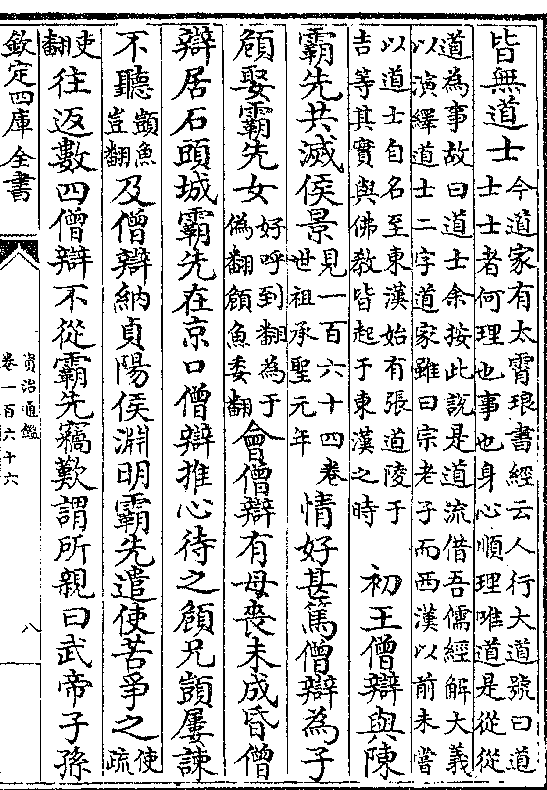 皆無道士今道家有太霄琅書經云人行大道號曰道士士者何理也事也身心順理唯道是從從
道為事故曰道士余按此說是道流借吾儒經解大義以演繹道士二字道家雖曰宗老子而西漢以前未嘗
以道士自名至東漢始有張道陵于吉等其實與佛教皆起于東漢之時初王僧辯與陳
霸先共滅侯景見一百六十四卷世祖承聖元年情好甚篤僧辯為子
頠娶霸先女好呼到翻為于偽翻頠魚委翻會僧辯有母喪未成昏僧
辯居石頭城霸先在京口僧辯推心待之頠兄顗屢諫
不聽顗魚豈翻及僧辯納貞陽侯淵明霸先遣使苦爭之使疏
吏翻往返數四僧辯不從霸先竊歎謂所親曰武帝子孫
欽定四庫全書
資治通鑑
卷一百六十六
八